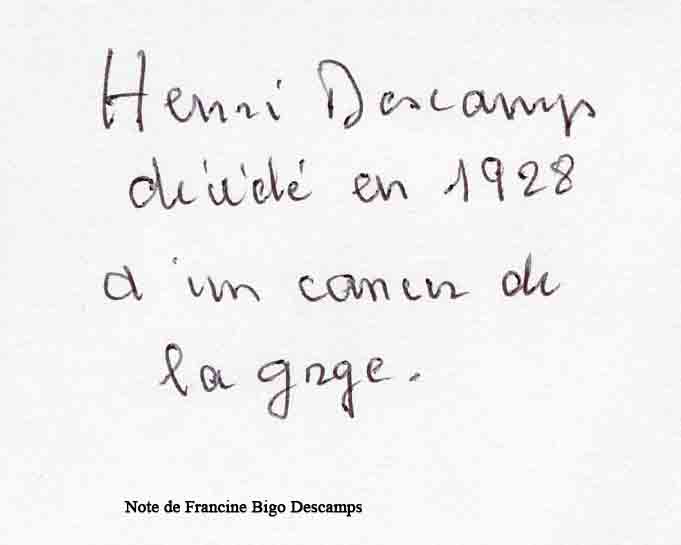 Henri Descamps
décédé en 1928
d'un cancer de
la gorge.
Note de Francine Bigo Descamps